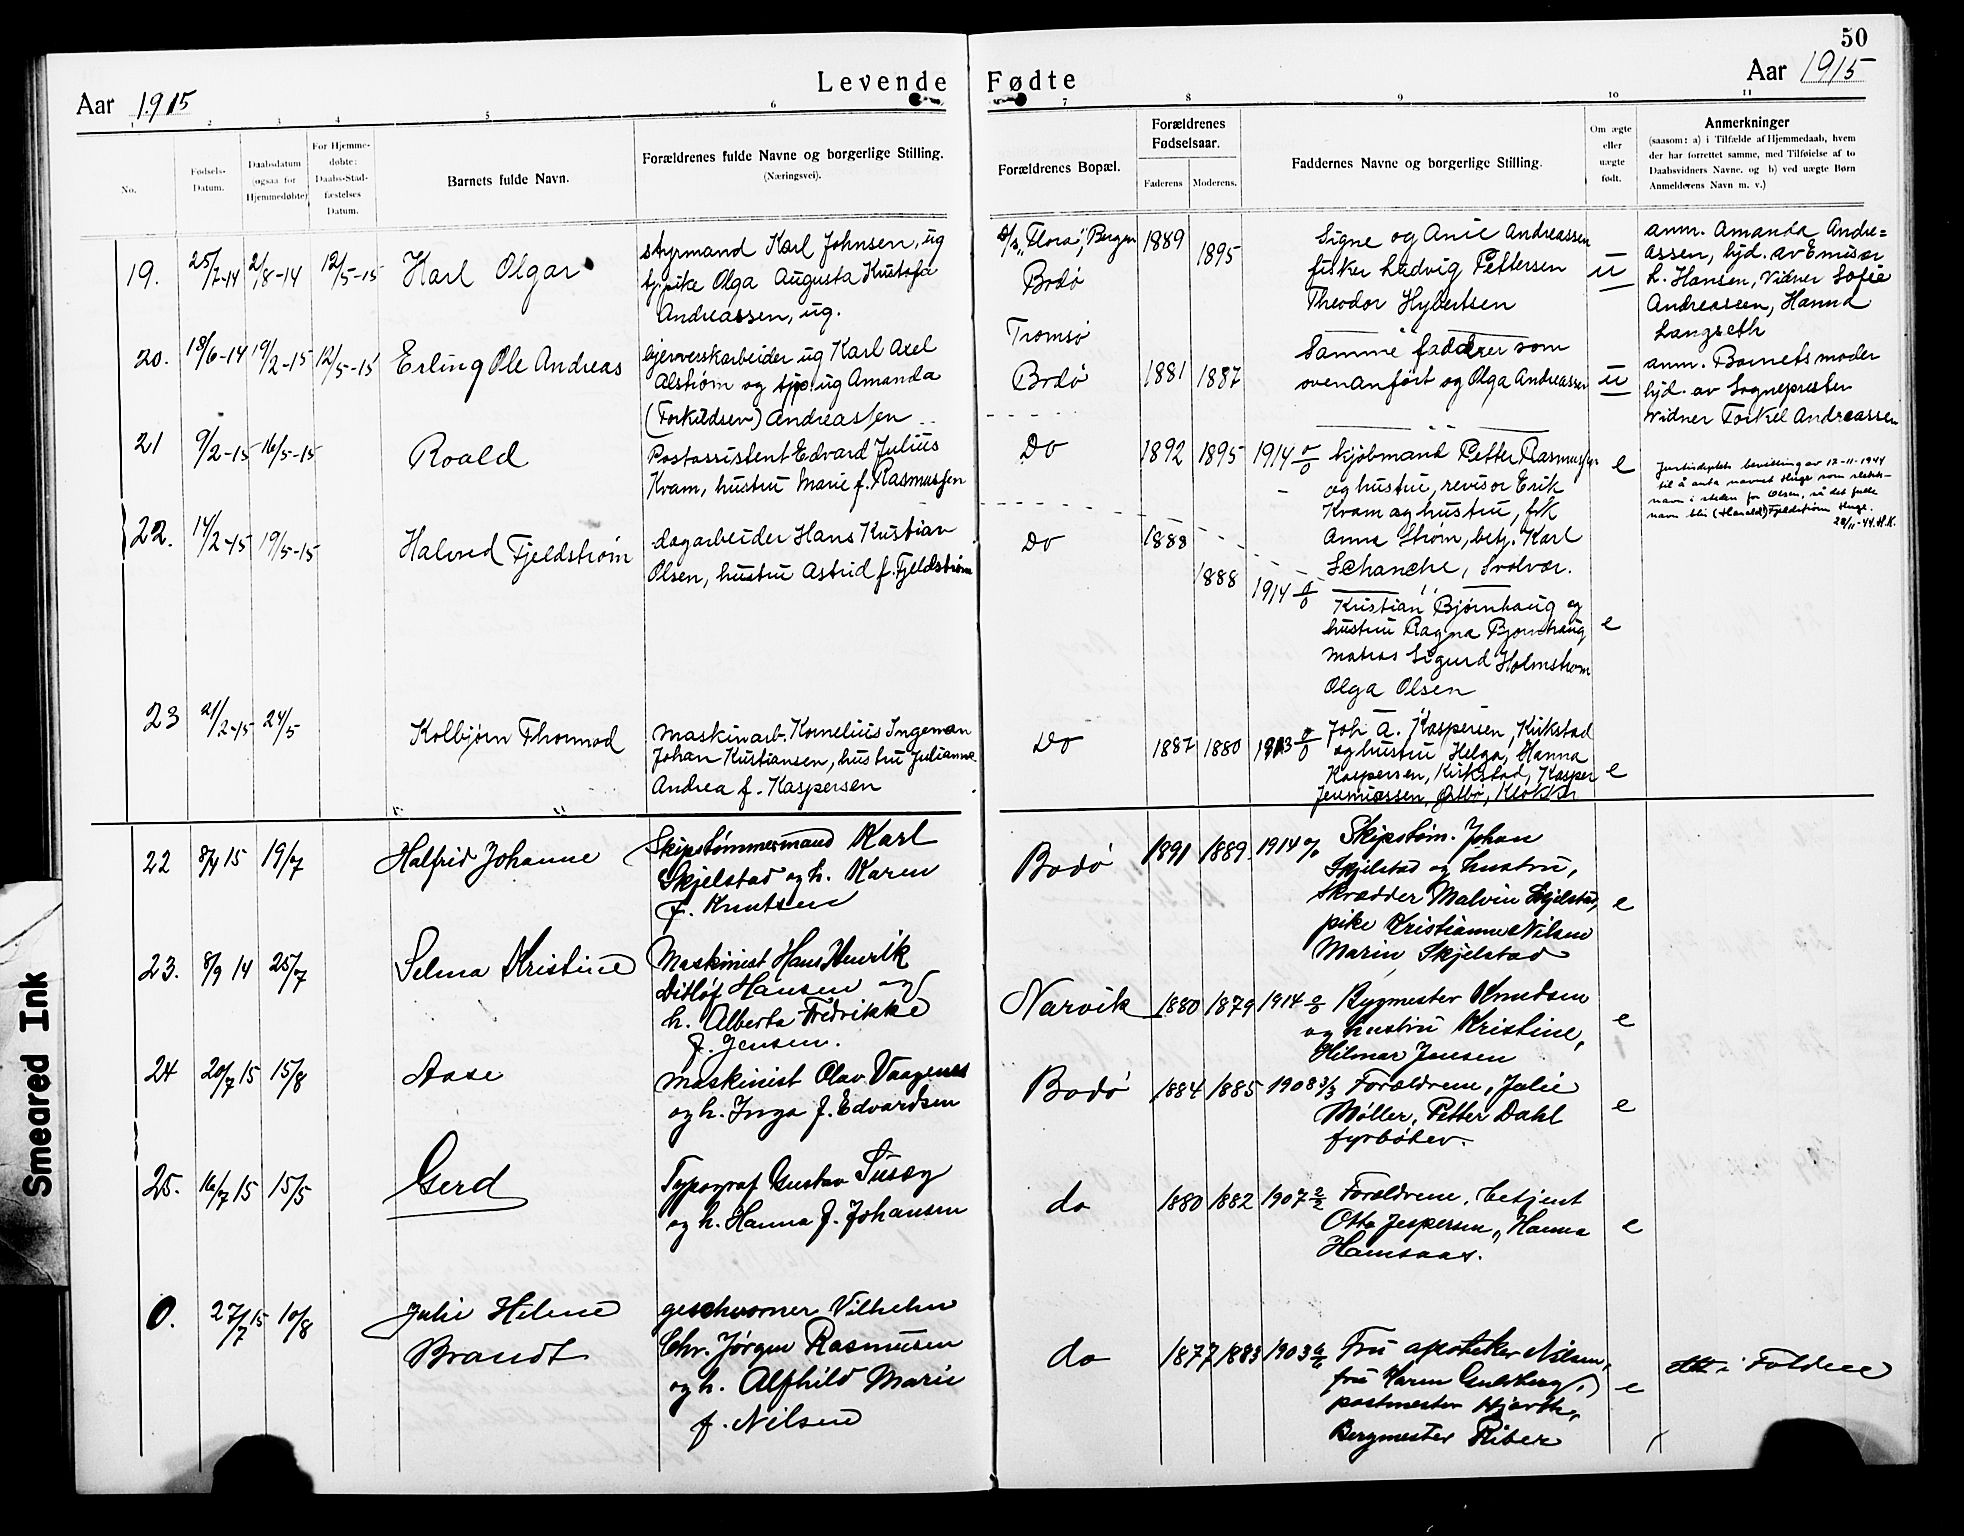 50
Levende Fødte
Aar 1915
Aar 1915
1 2 3 4 5 6 7 8 9 10 11
No.
Fødsels-
Datum.
Daabsdatum
(ogsaa for
Hjemmedøbte)
For Hjemme-
døbte:
Daabs-Stad-
fæstelses
Datum.
Barnets fulde Navn.
Forældrenes fulde Navne og borgerlige Stilling.
(Næringsvei).
Forældrenes Bopæl.
Forældrenes
Fødselsaar.
Faderens
Moderens.
Faddernes Navne og borgerlige Stilling.
Om ægte
eller
uægte
født.
Anmerkninger
(saasom: a) i Tilfælde af Hjemmedaab, hvem
der har forrettet samme, med Tilføielse af to
Daabsvidners Navne. og b) ved uægte Børn
Anmelderens Navn m. v.)
19. 25/7-14 2/8-14 12/5-15 Karl Olgar
styrmand Karl Johnsen, ug
tj.pike Olga Augusta Kristofa
Andreassen, ug.
s/s "Flora", Bergen
Bodø
1889 1895
Signe og Anie Andreassen
fisker Ludvig Pettersen
Theodor Hybertsen
u
anm. Amanda Andre=
assen, hjd. av Emisær
L. Hansen, Vidner Sofie
Andreassen, Hanna
Langseth
20. 18/6-14 19/2-15 12/5-15 Erling Ole Andreas
gjerverskarbeider ug Karl Axel
Alstrøm og tjp. ug Amanda
(Torkildsen) Andreassen
Tromsø
Bodø
1881 1887
Samme faddrer som
ovenanført og Olga Andreassen
u
anm. Barnets moder
hjd. av Sognepresten
Vidner Torkel Andreassen
21 9/2-15 16/5-15 Roald
Postassistent Edvard Julius
Kvam, hustru Marie f. Rasmussen
Do
1892 1895 1914 0/0
kjøbmand Petter Rasmussen
og hustru, revisor Erik
Kvam og hustru, frk
Anna Strøm, betj. Karl
Schanche, Svolvær.
e
22. 14/2-15 19/5-15 Halvred Fjeldstrøm
dagarbeider Hans Kristian
Olsen, hustru Astrid f. Fjeldstrøm
Do
1888 1888 1914 0/0
Kristian Bjørnhaug og
hustru Ragna Bjørnhaug
matros Sigurd Holmstrøm
Olga Olsen
e
Justisdeptets bevilling av 12-11-1944
til å anta navnet Hauge som slekts-
navn i steden for Olsen, så det fulle
navn blir (Harald) Fjeldstrøm Hauge.
22/11-44. H.K.
23 21/2-15 24/5 Kolbjørn Thormod
maskinarb. Kornelius Ingeman
Johan Kristiansen, hustru Julianna
Andrea f. Kaspersen
Do
1887 1880 1913 0/0
Joh A. Kaspersen, Kirkstad
og hustru Helga, Hanna
Kaspersen, Kirkstad, Kasper
Jeremiassen, Ørlbø, Klokker
e
22 8/4 15 19/7 Halfrid Johanne
Skipstømmermand Karl
Skjelstad og h. Karen
f. Knutsen
Bodø
1891 1889. 1914 0/0
Skipstøm. Johan
Skjelstad og hustru,
Skrædder Malvin Skjelstad,
pike Kristianne Nilsen
Marin Skjelstad
e
23. 8/9 14 25/7 Selma Kristine
Maskinist Hans Henrik
Ditløf Hansen og
h. Alberta Fredrikke
f. Jensen.
Narvik
1880 1879 1914 0/0
Bygmester Knudsen
og hustru Kristine,
Hilmar Jensen
e
24 20/7 15 15/8 Aase
Maskinist Olav Vaagenes
og h. Inga f. Edvardsen
Bodø
1884 1885 1908 3/3
Forældrene, Julie
Møller, Petter Dahl
fyrbøder.
e
25. 16/7 15 15/5 Gerd
Typograf Gustav Susæg
og h. Hanna f. Johansen
do
1880 1882 1907 2/2
Forældrene, betjent
Otto Jespersen, Hanna
Hamsaas.
e
0. 27/7 15 10/8 Julie Helene
Brandt
geschworner Vilhelm
Chr. Jørgen Rasmussen
og h. Alfhild Marie
f. Nilsen
do
1877 1883 1903
Fru apoteker Nilsen,
fru Karen Gulsberg,
postmester Hjorth,
Bergmester Riber
e
i Folden
Smeared Ink